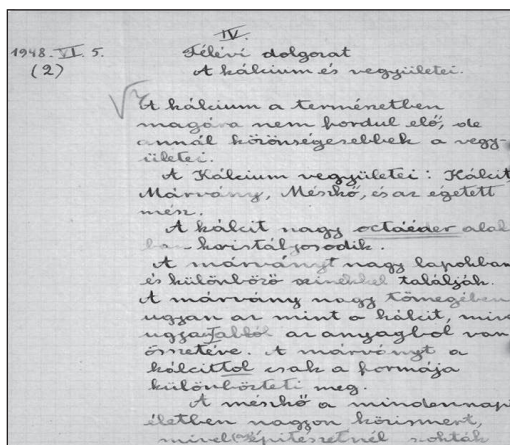 IV.
1948. VI. 5. Félévi dolgozat
(2) A kálcium és vegyületei.
A kálcium a természetben
magára nem fordul elő, de
annál közönségesebbek a vegy-
ületei.
A Kálcium vegyületei: Kálcit,
Márvány, Mészkő, és az égetett
mész.
A kálcit nagy octáéder alak
ban kristályosodik.
A márványt nagy lapokban
és különböző színekkel találják.
A márvány nagy tömegében
ugyan az mint a kálcit, mivel
ugyan abból az anyagból van
összetéve. A márványt a
kálcittól csak a formája
különbözteti meg.
A mészkő a mindennapi
életben nagyon közismert,
mivel építészetnél